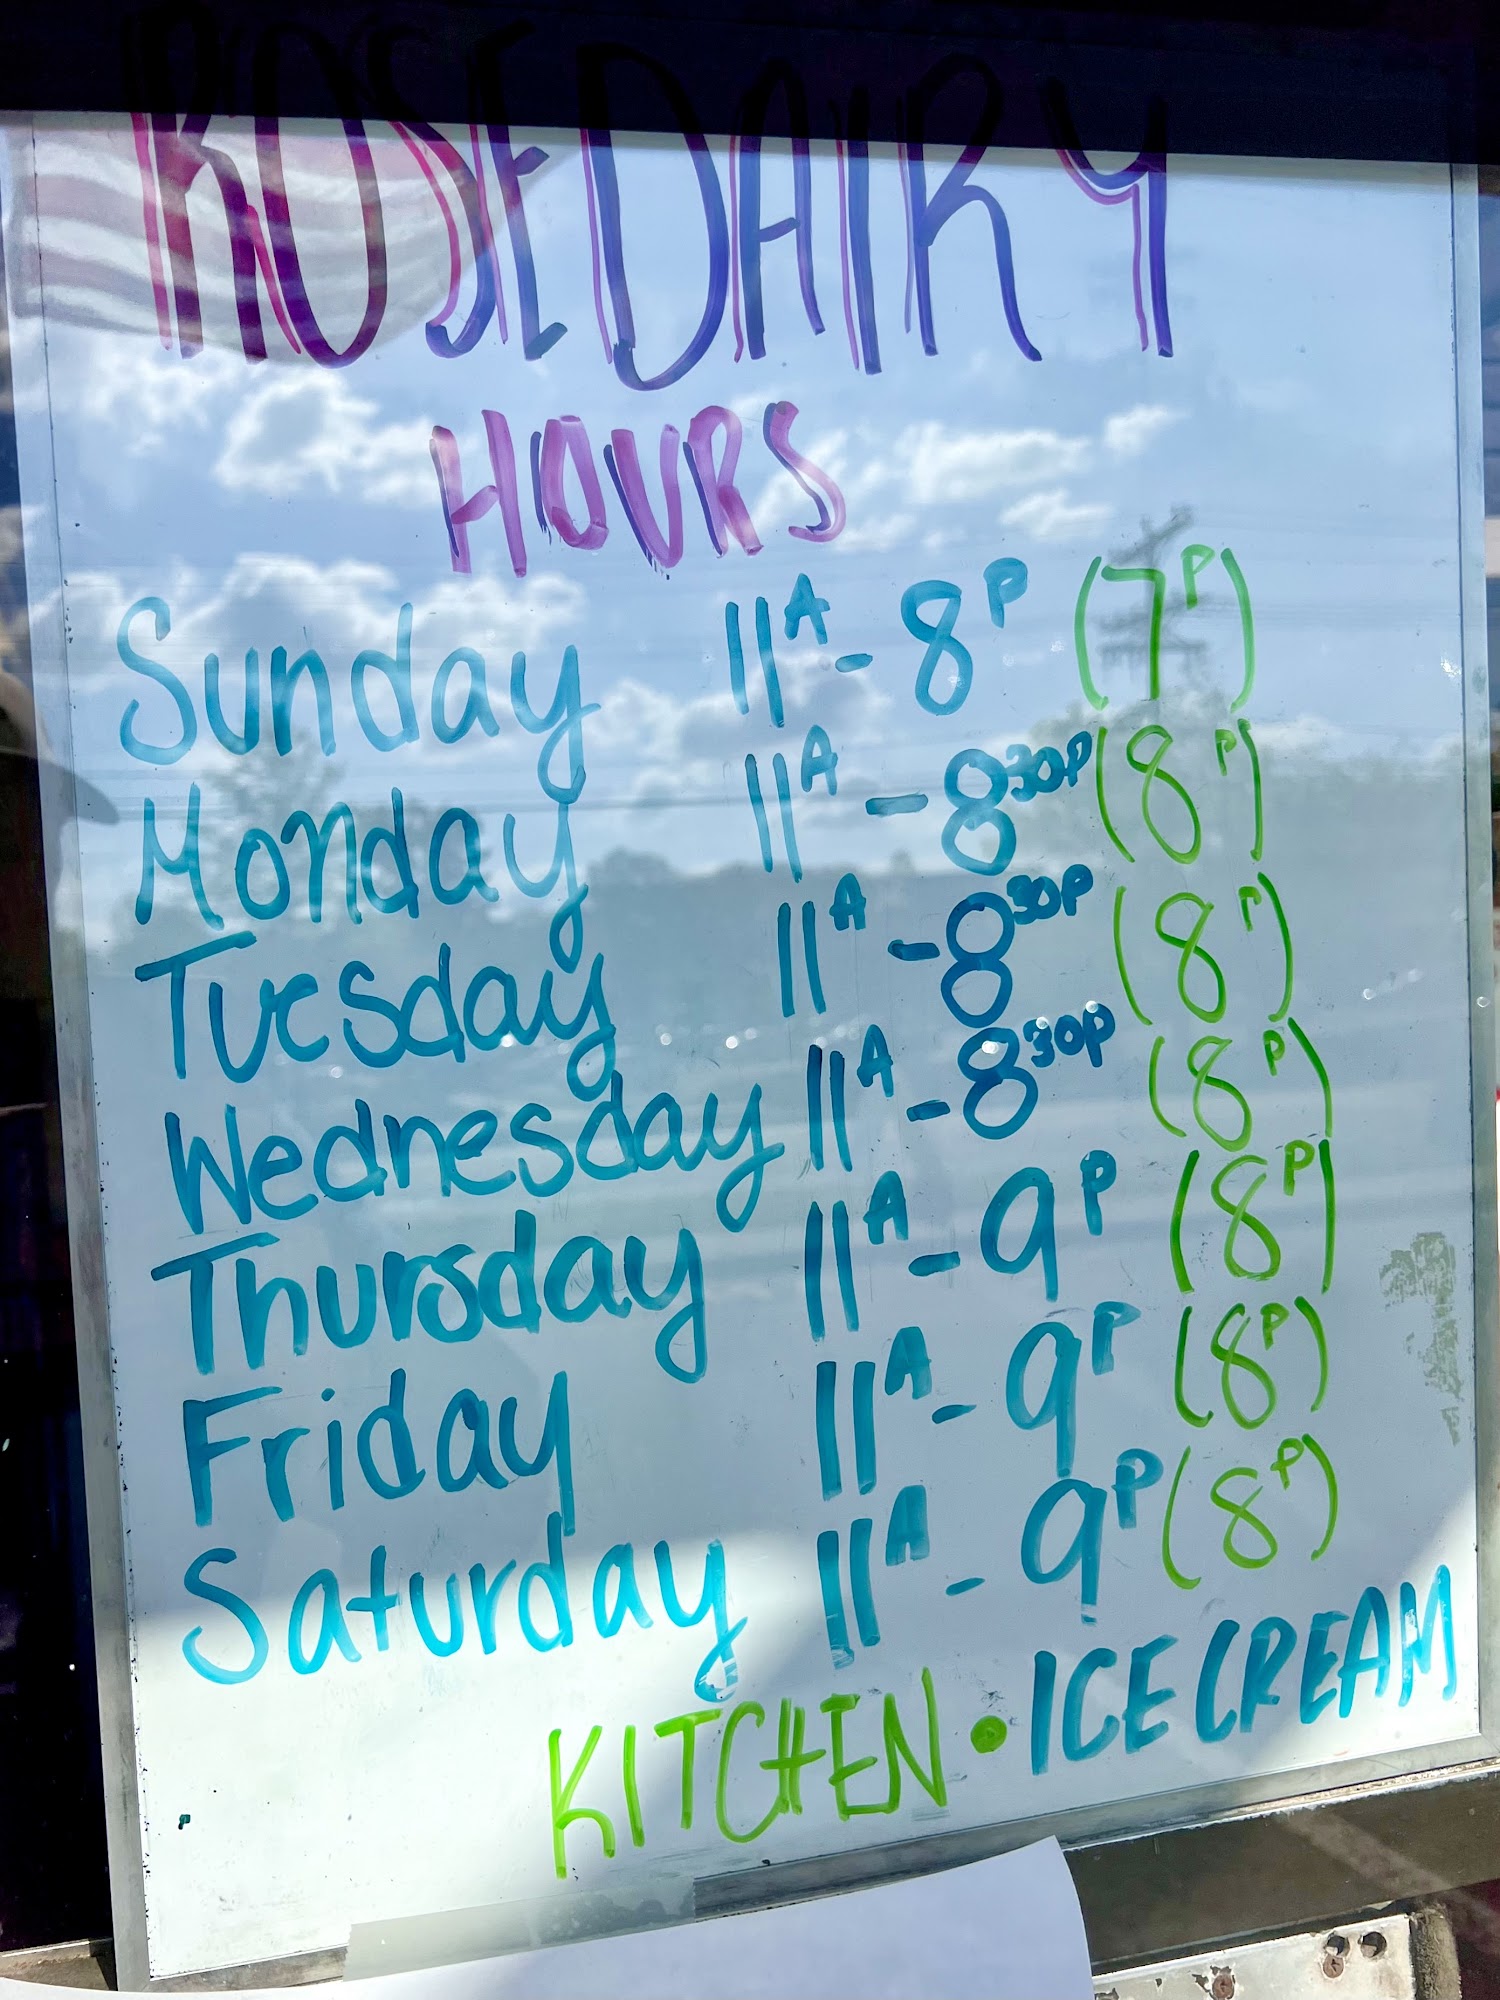 ROSEDAIRY
HOURS
Sunday 11A - 8P (7P)
Monday 11A - 830P (8P)
Tuesday 11A - 830P (8P)
Wednesday 11A - 830P (8P)
Thursday 11A - 9P (8P)
Friday 11A - 9P (8P)
Saturday 11A - 9P (8P)
KITCHEN • ICE CREAM